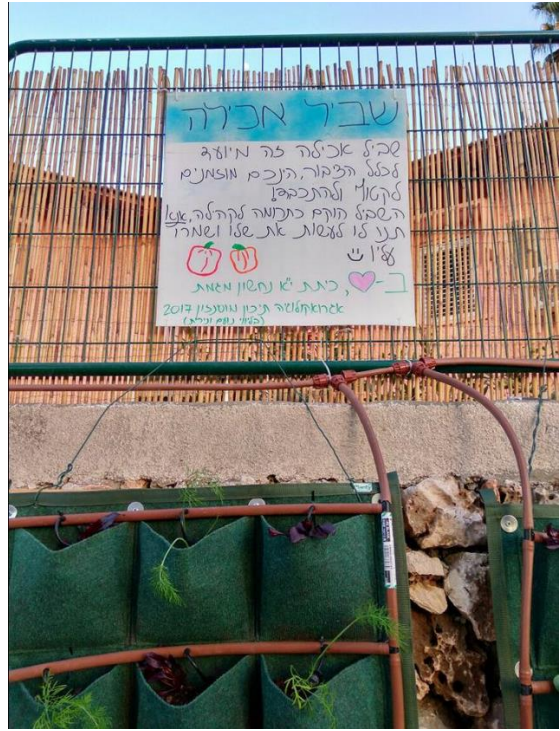 שביל אכילה
שביל אכילה זה מיועד
לכלל הציבור. הינכם מוזמנים
לקטוף ולהתכבד!
השביל הוקם כתרומה לקהילה, אנא
תנו לו לעשות את שלו ושמרו
עליו
ב-♥, כיתת י"א נחשון מגמת
אגרואקולוגיה תיכון מוסנזון 2017